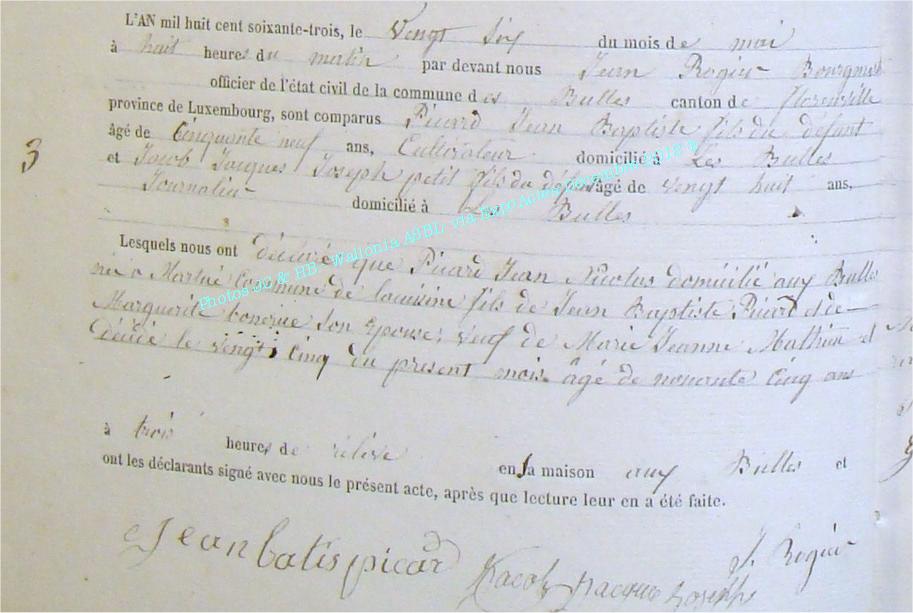 L'AN mil huit cent soixante-trois, le vingt six du mois de mai
à huit heures du matin par devant nous Jean Rogier Bourgmest
officier de l'état civil de la commune des Bulles canton de florenville
province de Luxembourg, sont comparus Picard Jean Baptiste fils du défunt
âgé de Cinquante neuf ans, Cultivateur domicilié à Les Bulles
3
et Jacob Jacques Joseph petit fils du défunt âgé de vingt huit ans,
Journalier domicilié à Les Bulles
Lesquels nous ont déclaré que Picard Jean Nicolas domicilié aux Bulles
né à Martué Commune de lacuisine fils de Jean Baptiste Picard et de
Marguerite son Epouse; veuf de Marie Jeanne Mathieu et
décédé le vingt cinq du présent mois âgé de nonante Cinq ans
à trois heures de relevée en la maison aux Bulles et
ont les déclarants signé avec nous le présent acte, après que lecture leur en a été faite.
Jean batis picard Jacob Jacque Joseph J. Rogier